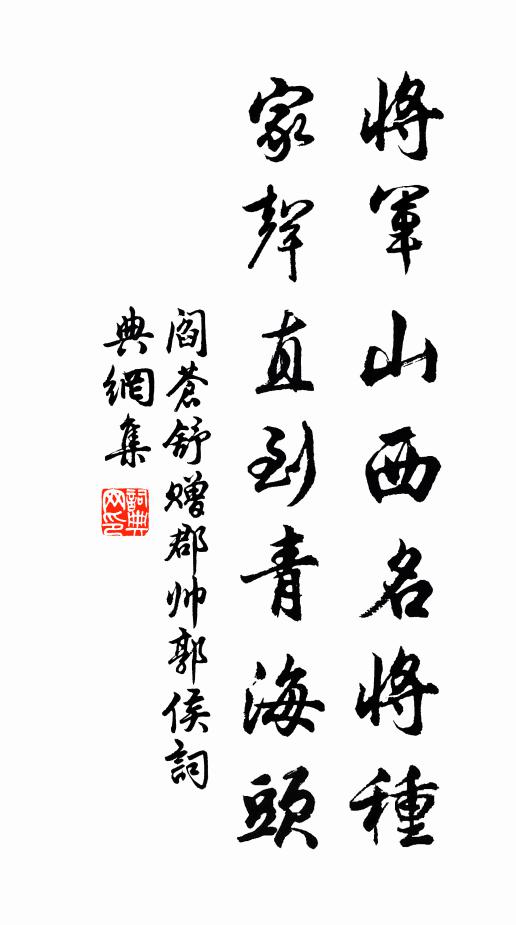 將軍山西名將種
家聲直到青海頭
閻蒼舒贈郡帅郭侯詞
典網集
詞典
网印